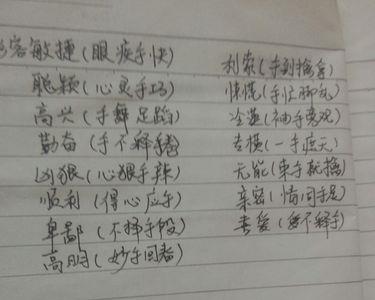 容敏捷(眼疾手快)
聪颖(心灵手巧)
高兴(手舞足蹈)
勤奋(手不释卷)
凶狠(心狠手辣)
顺利(得心应手)
卑鄙(不择手段)
高明(妙手回春)
利索(手到擒拿)
惊慌(手忙脚乱)
冷淡(袖手旁观)
专横(一手遮天)
无能(束手就擒)
亲密(情同手足)
喜爱(爱不释手)